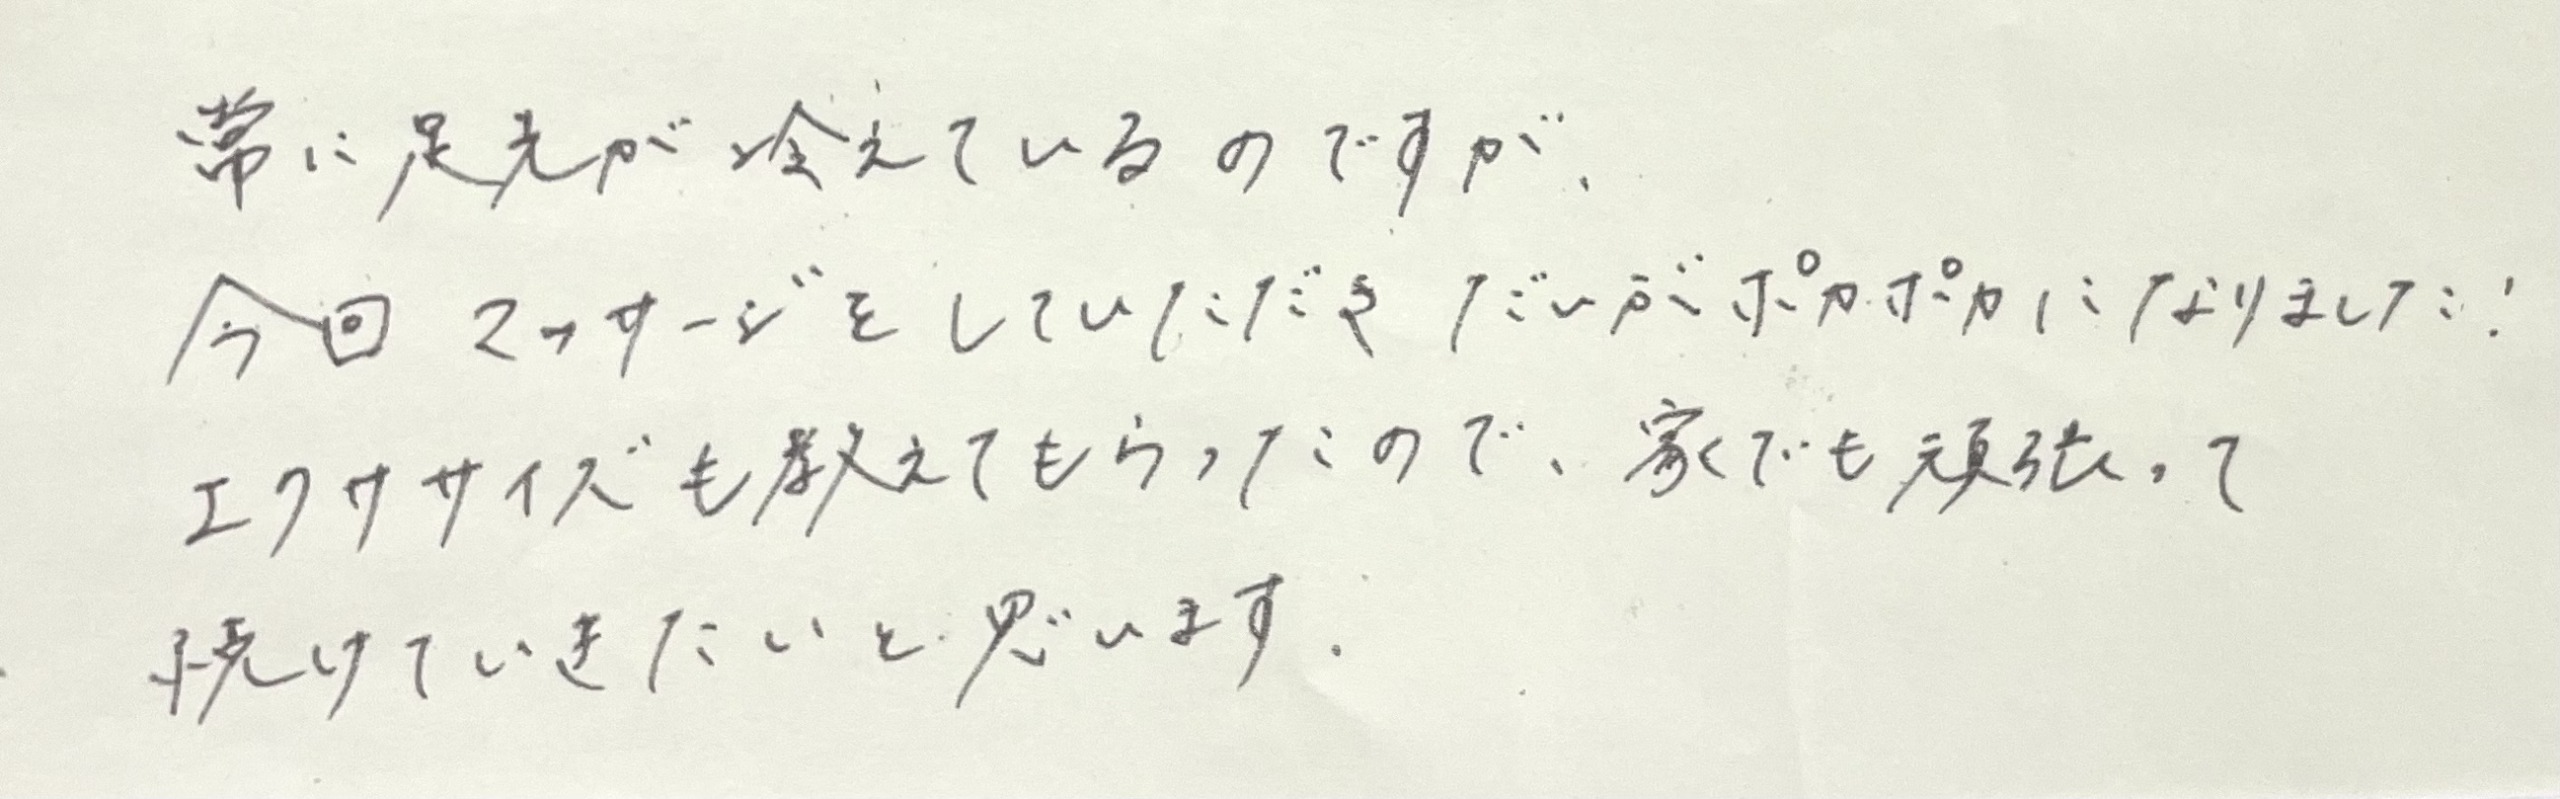 常に足先が冷えているのですが、
今回マッサージをしていただきだいぶポカポカになりました!
エクササイズも教えてもらったので、家でも頑張って
続けていきたいと思います.